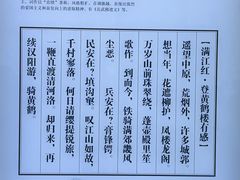 【满江红·登黄鹤楼有感】
遥望中原，荒烟外、许多城郭。
想当年、花遮柳护，凤楼龙阁。
万岁山前珠翠绕，蓬壶殿里笙
歌作。到而今，铁骑满郊畿，风
尘恶。
兵安在？膏锋锷。
民安在？填沟壑。叹江山如故，
千村寥落。何日请缨提锐旅，
一鞭直渡清河洛。却归来、再
续汉阳游，骑黄鹤。